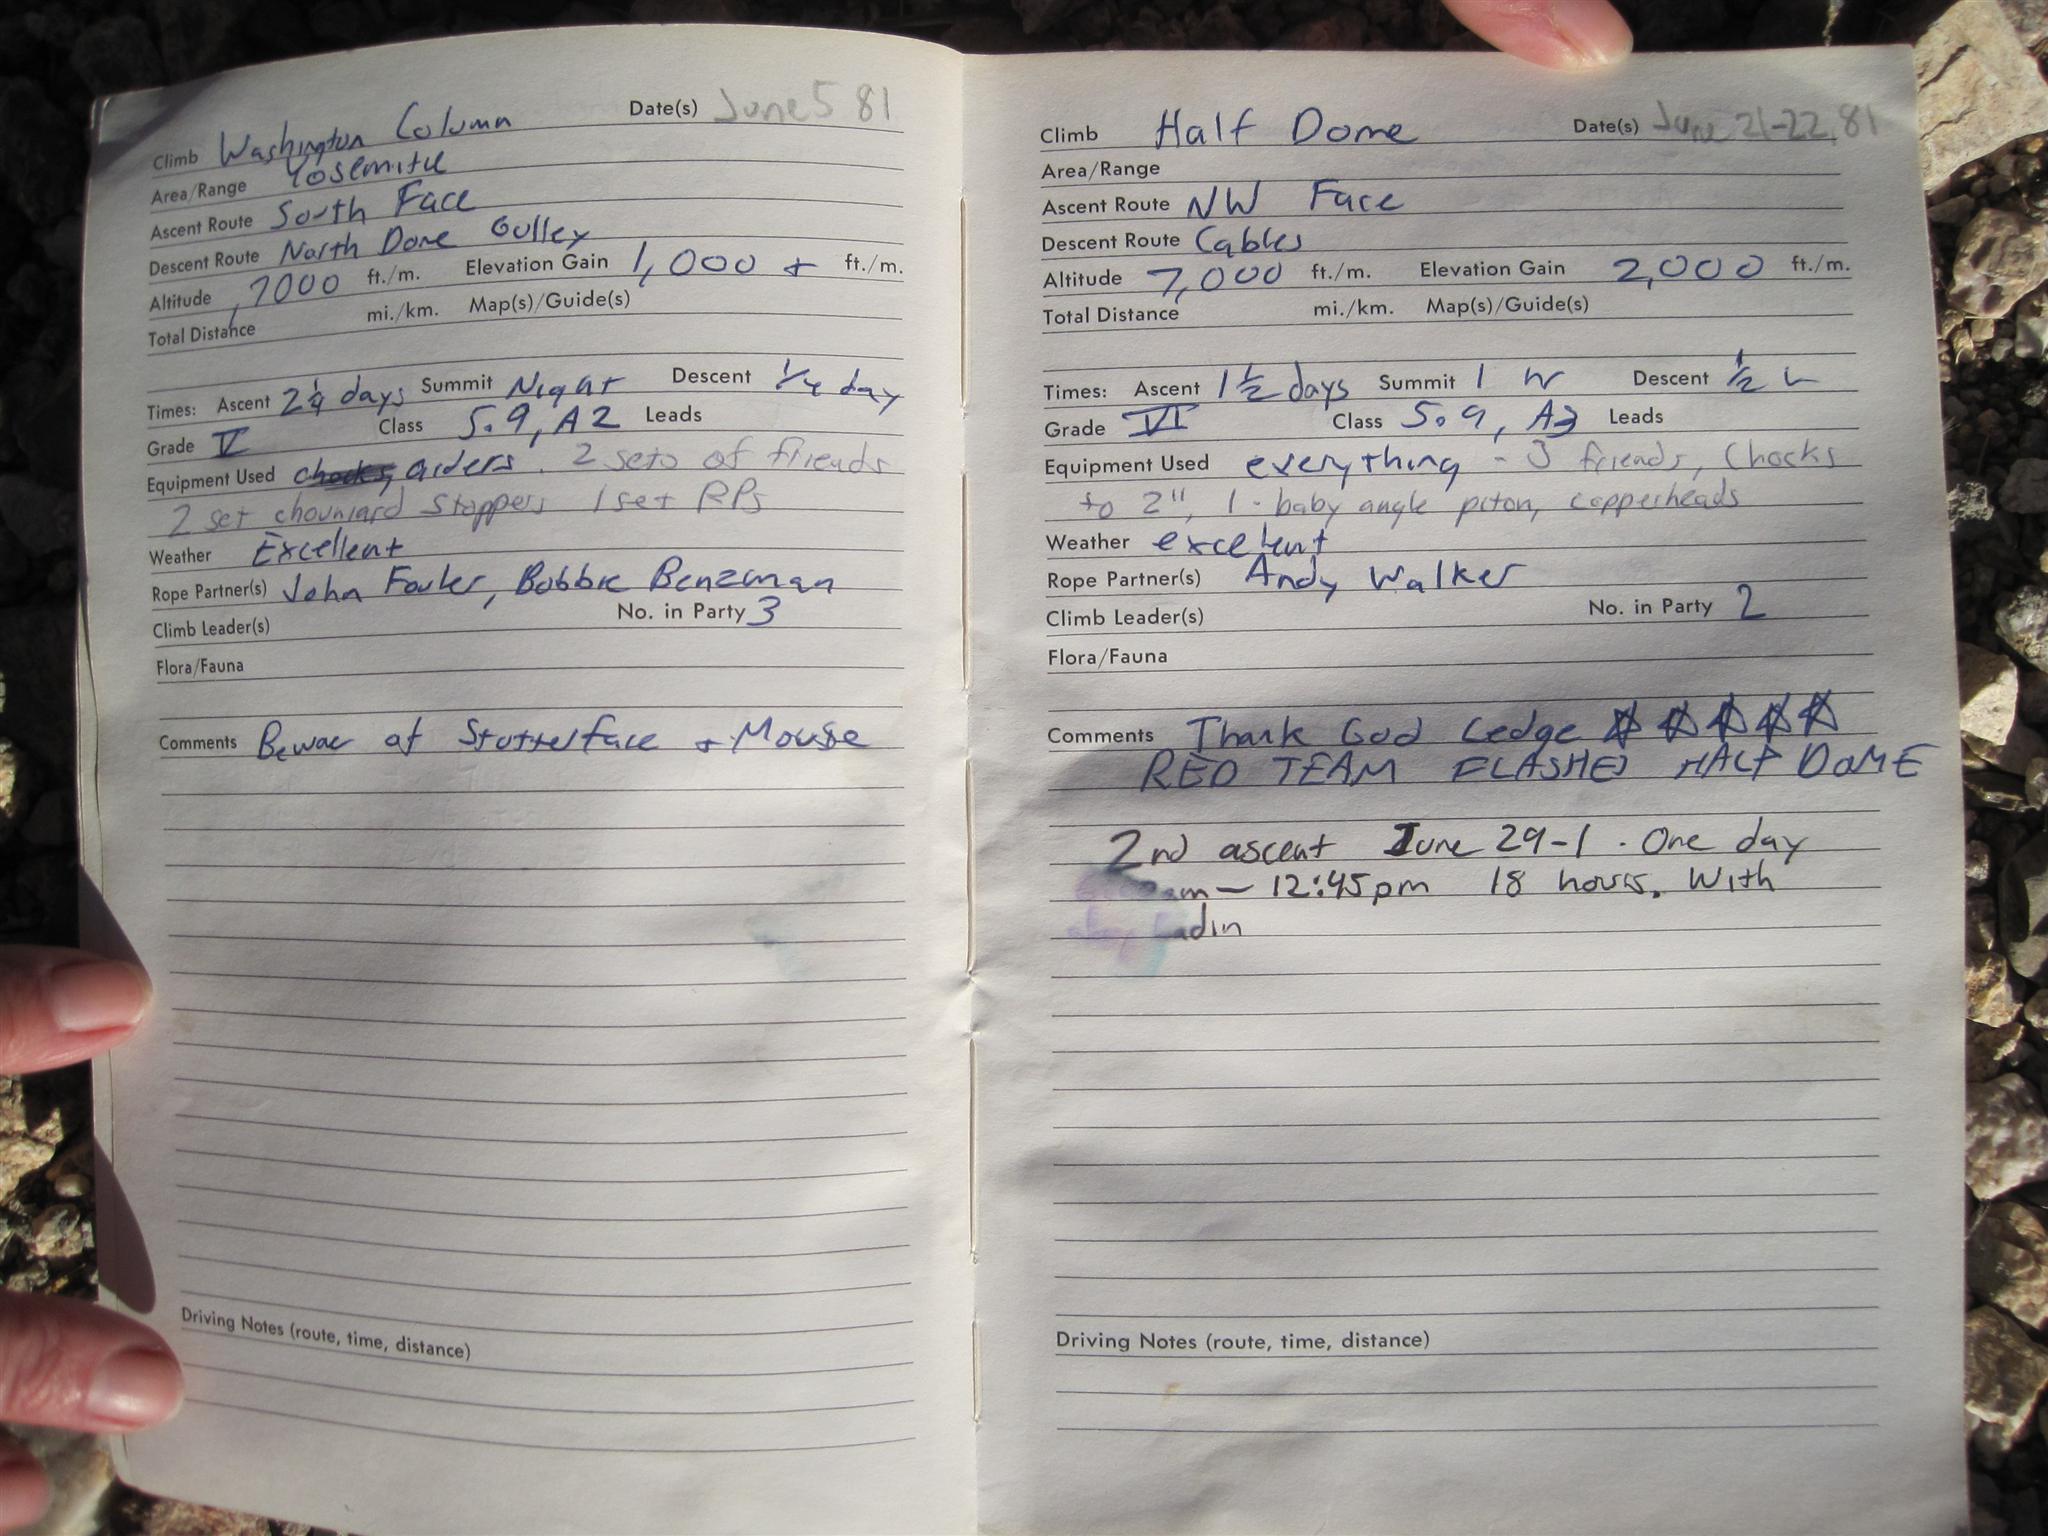 Climb Washington Column Date(s) June 5 81
Area/Range Yosemite
Ascent Route South Face
Descent Route North Dome Gulley
Altitude 7000 ft./m. Elevation Gain 1,000 + ft./m.
Total Distance mi./km. Map(s)/Guide(s)
Times: Ascent 2 1/4 days Summit Night Descent 1/4 day
Grade V Class 5.9, A2 Leads
Equipment Used aiders. 2 sets of friends
2 set chouniard stoppers 1 set RPs
Weather Excellent
Rope Partner(s) John Fowler, Bobbie Benzman
Climb Leader(s) No. in Party 3
Flora/Fauna
Comments Bewae of Stutterface + Mouse
Driving Notes (route, time, distance)
Climb Half Dome Date(s) June 21-22, 81
Area/Range
Ascent Route NW Face
Descent Route Cables
Altitude 7,000 ft./m. Elevation Gain 2,000 ft./m.
Total Distance mi./km. Map(s)/Guide(s)
Times: Ascent 1 1/2 days Summit 1 hr Descent 1/2 h
Grade VI Class 5.9, A3 Leads
Equipment Used everything - 3 friends, Chocks
to 2", 1 - baby angle piton, copperheads
Weather excelent
Rope Partner(s) Andy Walker
Climb Leader(s) No. in Party 2
Flora/Fauna
Comments Thank God Ledge ☆ ☆ ☆ ☆ ☆
RED TEAM FLASHES HALF DOME
2nd ascent June 29-1. One day
am — 12:45pm 18 hours. With
Driving Notes (route, time, distance)